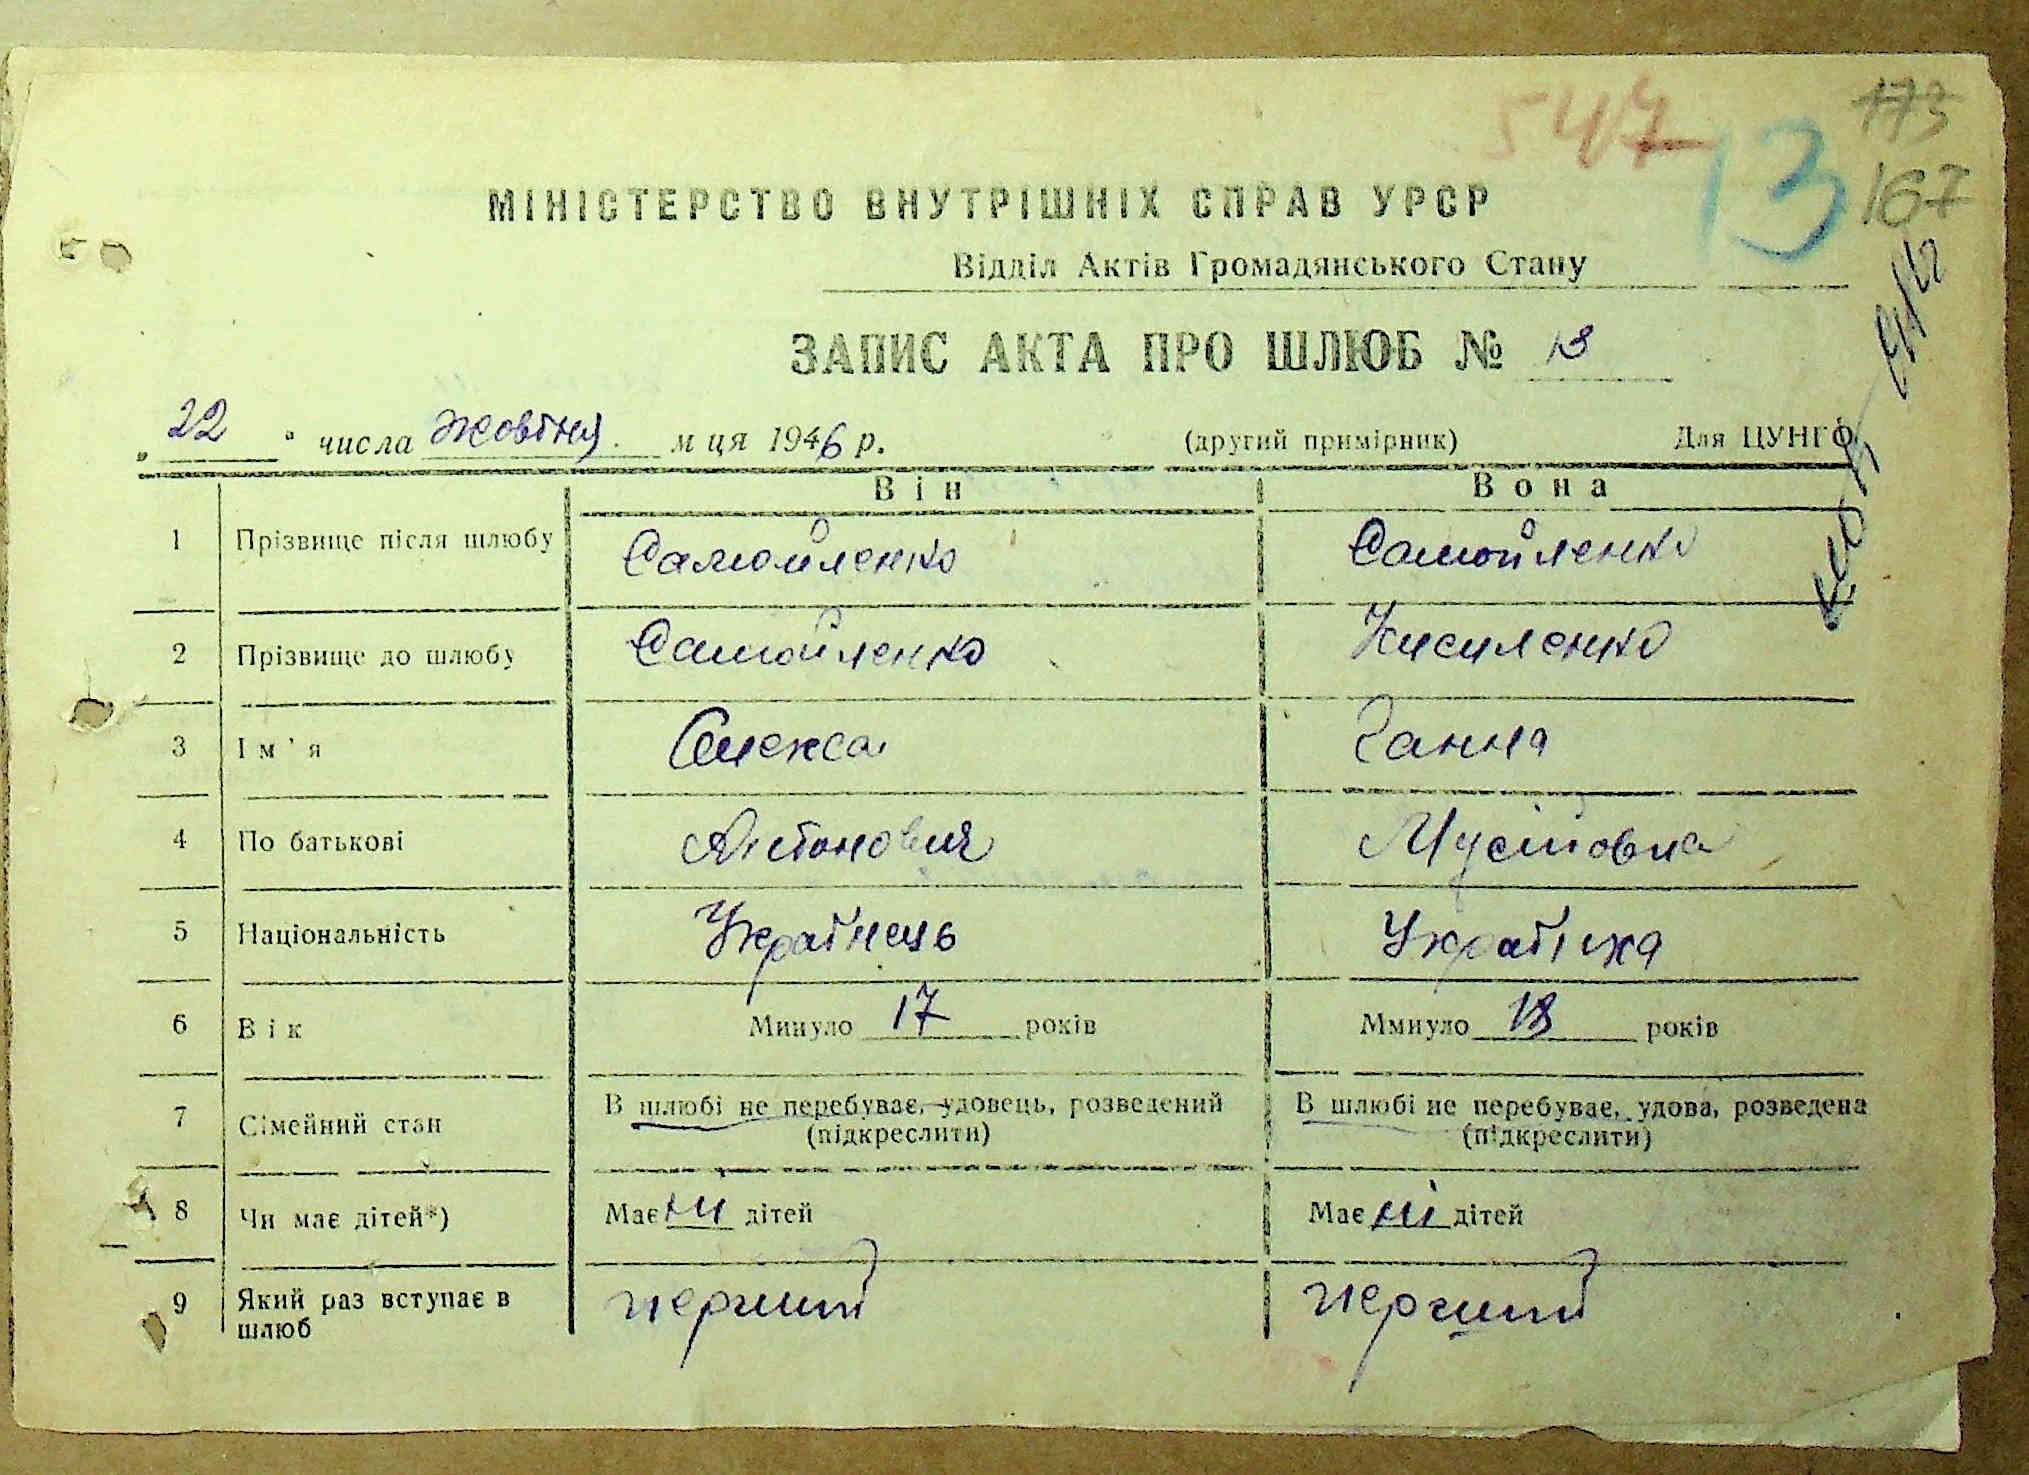 547
173
13
167
МІНІСТЕРСТВО ВНУТРІШНІХ СПРАВ УРСР
Відділ Актів Громадянського Стану
ЗАПИС АКТА ПРО ШЛЮБ № 13
„22" числа жовтня м ця 1946 р. (другий примірник) Для ЦУНГО
Він Вона
1 Прізвище після шлюбу Самойленко Самойленко
2 Прізвище до шлюбу Самойленко Кисиленко
3 Ім'я Олекса Ганна
4 По батькові Антонович Мусіївна
5 Національність Українець Українка
6 Вік Минуло 17 років Ммнуло 18 років
7 Сімейний стан В шлюбі не перебуває, удовець, розведений (підкреслити) В шлюбі не перебуває, удова, розведена (підкреслити)
8 Чи має дітей*) Має ни дітей Має ні дітей
9 Який раз вступає в шлюб перший перший